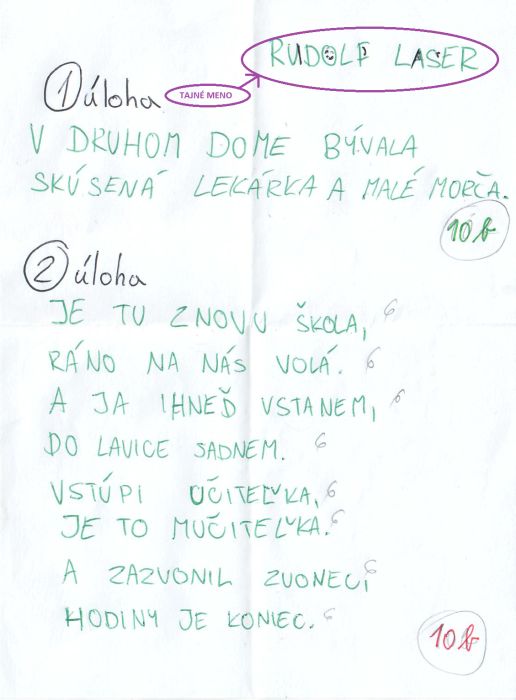 RUDOLF LASER
1 úloha TAJNÉ MENO
V DRUHOM DOME BÝVALA
SKÚSENÁ LEKÁRKA A MALÉ MORČA.
10 b
2 úloha
JE TU ZNOVU ŠKOLA, 6
RÁNO NA NÁS VOLÁ. 6
A JA IHNEĎ VSTANEM, 6
DO LAVICE SADNEM. 6
VSTÚPI UČITEĽKA, 6
JE TO MUČITEĽKA. 6
A ZAZVONIL ZVONEC, 6
HODINY JE KONIEC. 6
10 b